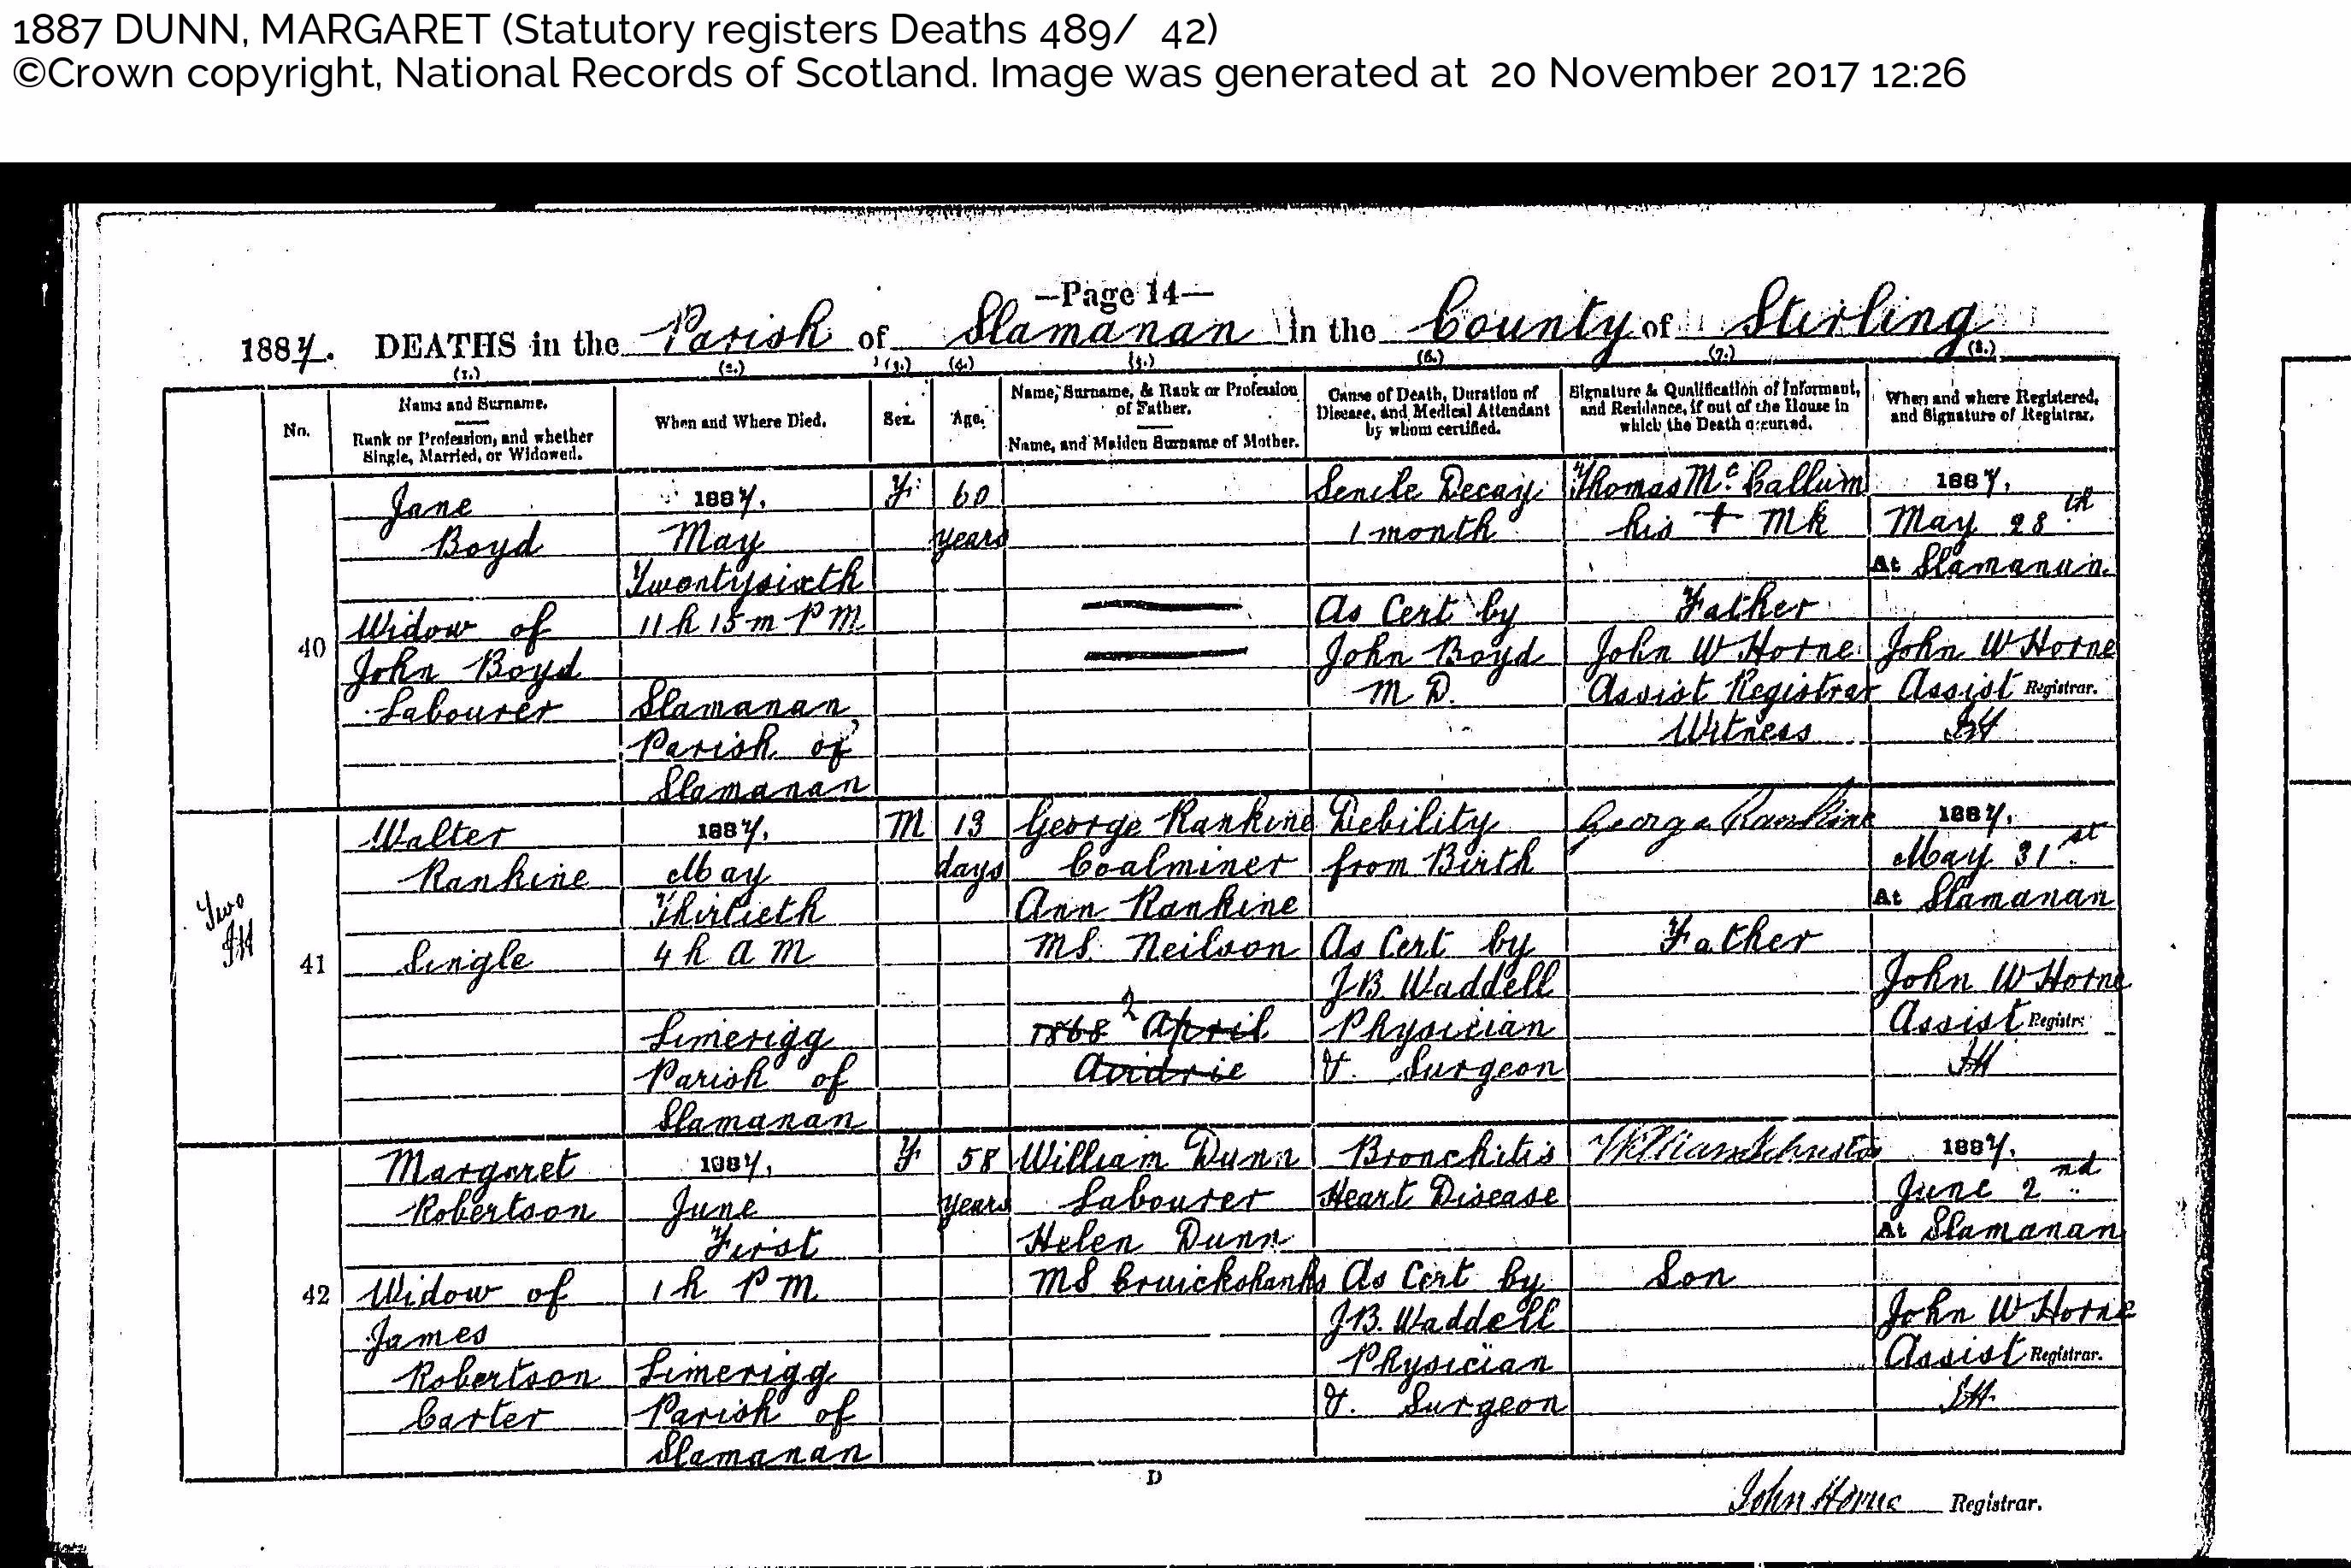 1887 DUNN, MARGARET (Statutory registers Deaths 489/ 42)
©Crown copyright, National Records of Scotland. Image was generated at 20 November 2017 12:26
—Page 14—
1887. DEATHS in the Parish of Slamanan in the County of Stirling
(1.) (2.) (3.) (4.) (5.) (6.) (7.) (8.)
No.
Name and Surname.
Rank or Profession, and whether
Single, Married, or Widowed.
When and Where Died.
Sex.
Age.
Name, Surname, & Rank or Profession
of Father.
Name, and Maiden Surname of Mother.
Cause of Death, Duration of
Disease, and Medical Attendant
by whom certified.
Signature & Qualification of Informant,
and Residence, if out of the House in
which the Death occurred.
When and where Registered,
and Signature of Registrar.
40
Jane
Boyd
Widow of
John Boyd
Labourer
1887.
May
Twentysixth
11 h 15 m P M
Slamanan,
Parish of
Slamanan
F
60
years
Senile Decay
1 month
As Cert by
John Boyd
M D.
Thomas McCallum
his + Mk
Father
John W Horne
Assist Registrar
Witness
1887.
May 28th
At Slamanan
John W Horne
Assist Registrar.
JH
Two
JH
41
Walter
Rankine
Single
1887.
May
Thirtieth
4 h A M
Limerigg
Parish of
Slamanan
M
13
days
George Rankine
Coalminer
Ann Rankine
MS. Neilson
1868 2 April
Airdrie
Debility
from Birth
As Cert by
J B. Waddell
Physician
& Surgeon
George Rankine
Father
1887.
May 31st
At Slamanan
John W Horne
Assist Registr.
JH
42
Margaret
Robertson
Widow of
James
Robertson
Carter
1887.
June
First
1 h P M
Limerigg
Parish of
Slamanan
F
58
years
William Dunn
Labourer
Helen Dunn
MS Cruickshanks
Bronchitis
Heart Disease
As Cert by
J B. Waddell
Physician
& Surgeon
William Johnston
Son
1887.
June 2nd
At Slamanan
John W Horne
Assist Registrar.
JH.
D
John Horne Registrar.